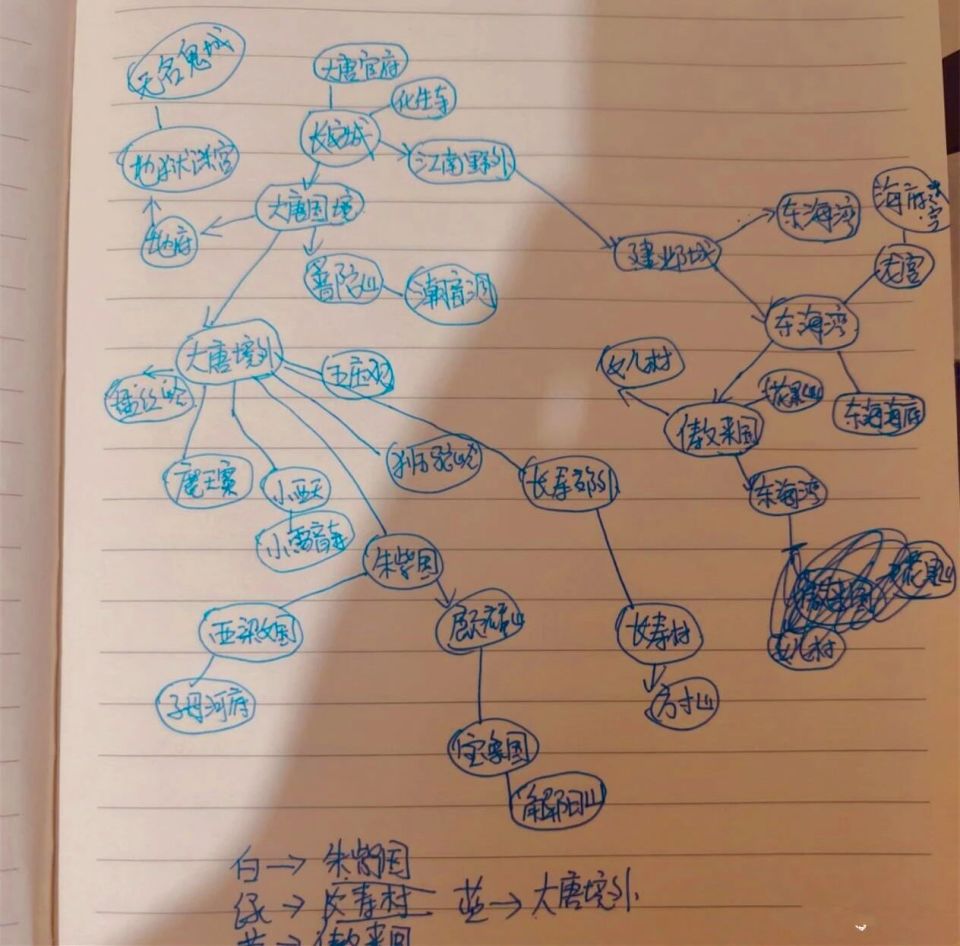 无名鬼城
大唐官府
化生寺
长安城
地狱迷宫
江南野外
大唐国境
地府
普陀山
潮音洞
建邺城
东海湾
海府迷宫
龙宫
东海湾
大唐境外
五庄观
女儿村
花果山
东海海底
傲来国
魔王寨
小西天
狮驼岭
长寿郊外
东海湾
小雷音寺
朱紫国
西梁女国
长寿村
女儿村
花果山
子母河底
方寸山
宝象国
解阳山
白→朱紫国
绿→长寿村 蓝→大唐境外
黄→傲来国